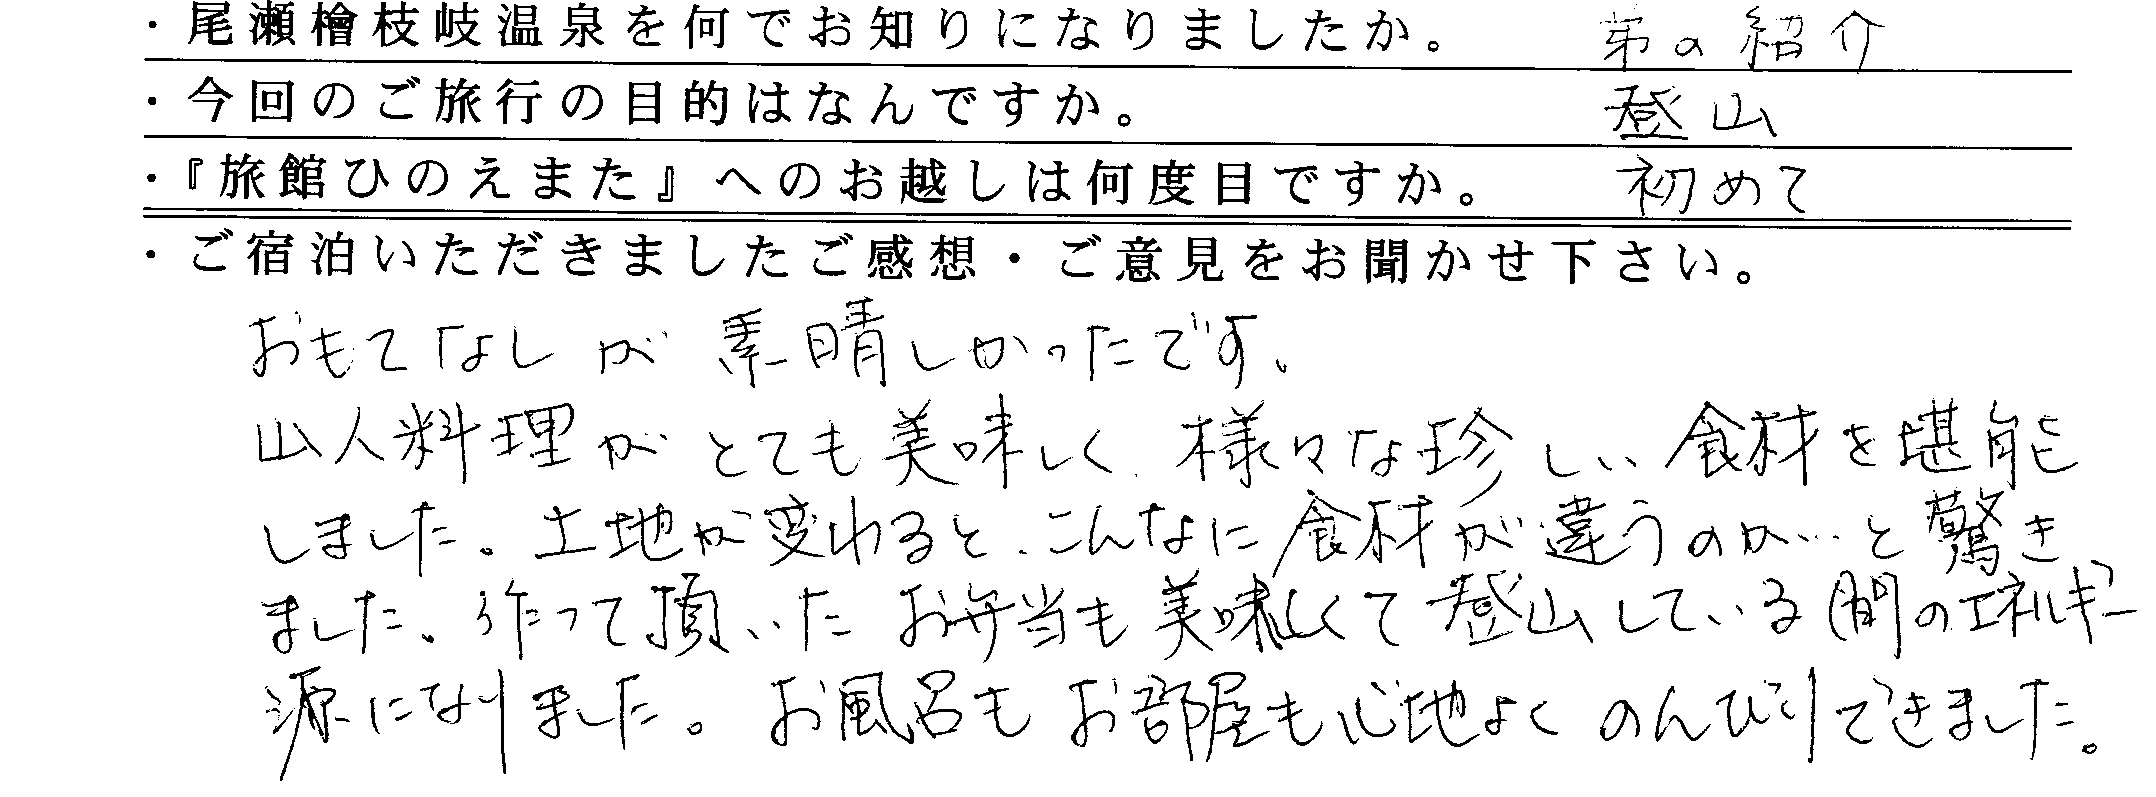 ・尾瀬檜枝岐温泉を何でお知りになりましたか。 弟の紹介
・今回のご旅行の目的はなんですか。 登山
・『旅館ひのえまた』へのお越しは何度目ですか。 初めて
・ご宿泊いただきましたご感想・ご意見をお聞かせ下さい。
おもてなしが素晴しかったです。
山人料理がとても美味しく、様々な珍しい食材を堪能
しました。土地が変わると、こんなに食材が違うのか…と驚き
ました。作って頂いたお弁当も美味しくて登山している間のエネルギー
源になりました。お風呂もお部屋も心地よくのんびりできました。